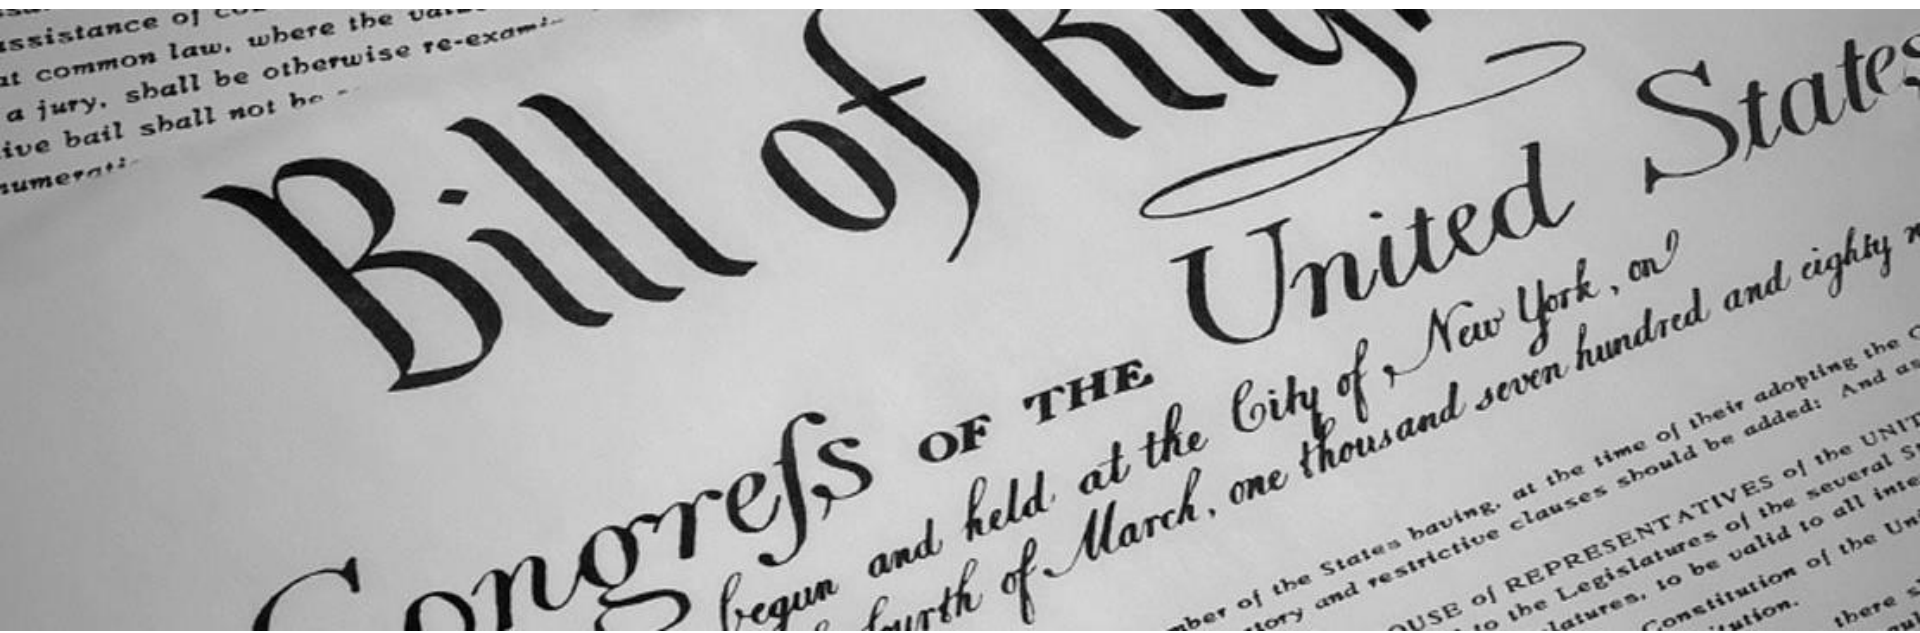 assistance of
at common law, where the
a jury, shall be otherwise re-exam
ive bail shall not be
Bill of Righ
Congreſs OF THE United States
begun and held at the City of New York, on
fourth of March, one thousand seven hundred and eighty n
mber of the States having, at the time of their adopting the C
tory and restrictive clauses should be added: And as
OUSE of REPRESENTATIVES of the UNIT
to the Legislatures of the several St
latures, to be valid to all inte
Constitution of the Uni
itution.
there s